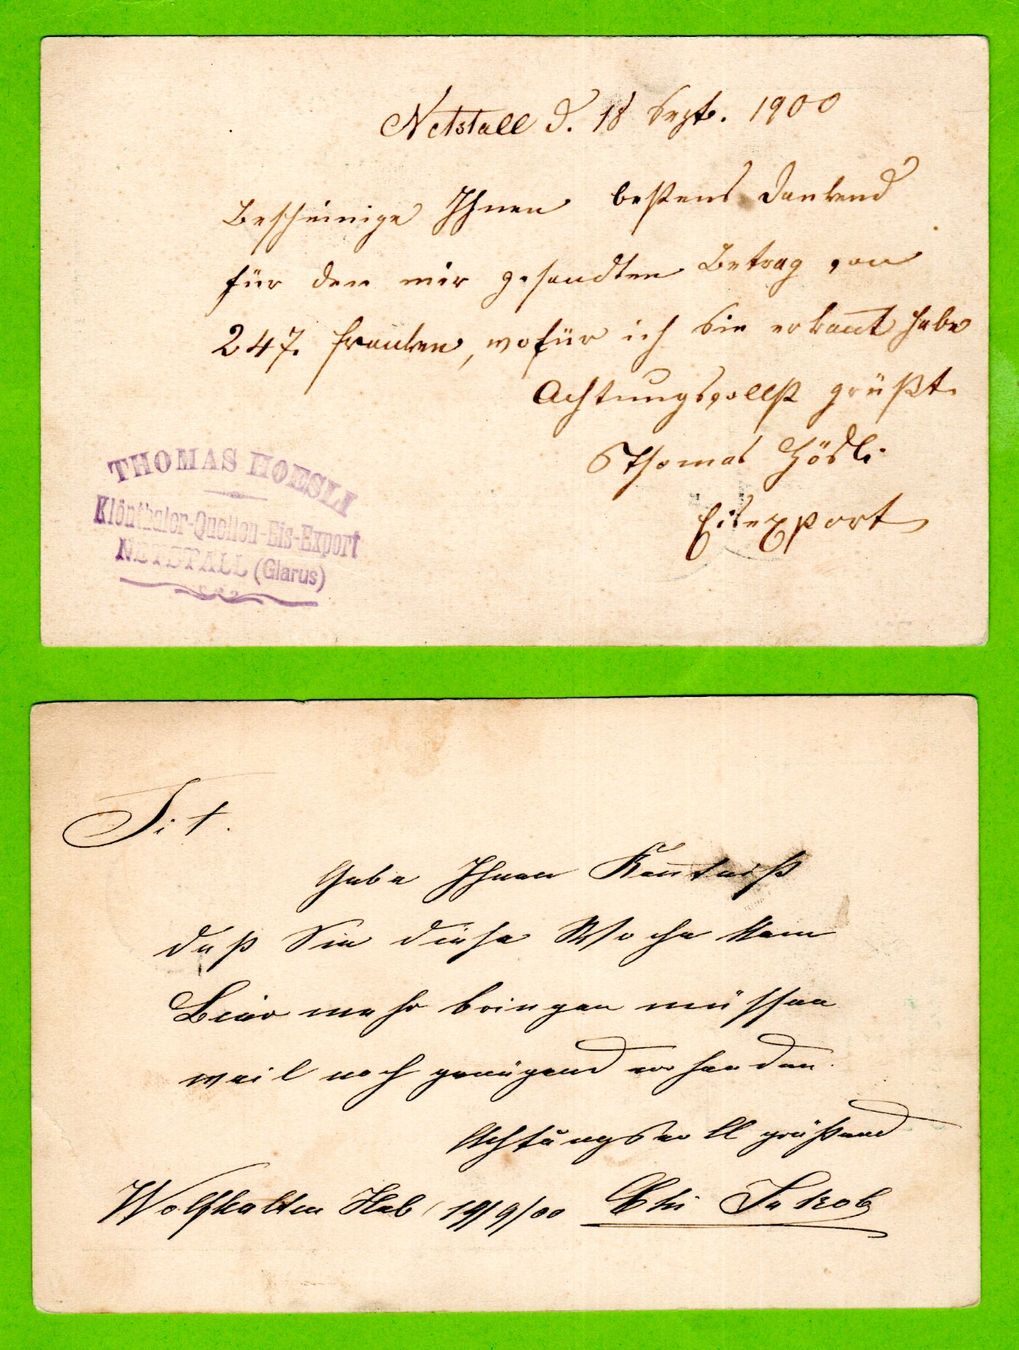 Netstall d. 18 Sept. 1900
Bescheinige Ihnen bestens dankend
für den mir gesandten Betrag von
247. Franken, wofür ich Sie erkannt habe
Achtungsvollst grüßt
Thomas Hösli
Eisexport
THOMAS HOESLI
Klönthaler-Quellen-Eis-Export
NETSTALL (Glarus)
Tit.
Gebe Ihnen Kenntniß
daß Sie diese Woche kein
Bier mehr bringen müssen
weil noch genügend vorhanden.
Achtungsvoll grüßend
Wolfhalden 19/9/00 Jakob